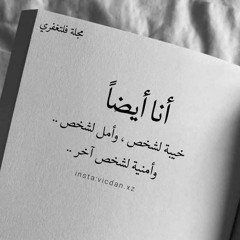 مجلة فلتغفري
أنا أيضاً
خيبة لشخص ، وأمل لشخص ..
وأمنية لشخص آخر ..
insta:vicdan.xz